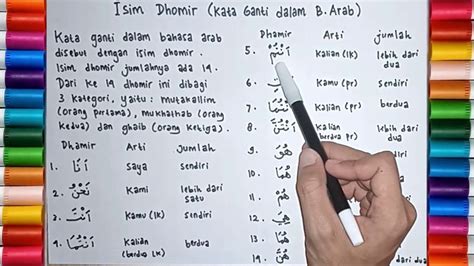 Isim Dhomir (Kata Ganti dalam B. Arab)
Kata ganti dalam bahasa arab
disebut dengan isim dhomir.
Isim dhomir jumlahnya ada 14.
Dari ke 14 dhomir ini dibagi
3 kategori, yaitu : mutakallim
(orang pertama), mukhathab (orang
kedua) dan ghaib (orang ketiga).
Dhamir Arti Jumlah
1. أَنَا saya sendiri
2. نَحْنُ Kami lebih dari satu
3. أَنْتَ Kamu (lk) sendiri
4. أَنْتُمَا Kalian (berdua lk) berdua
Dhamir Arti jumlah
5. أَنْتُمْ Kalian (lk) lebih dari dua
6. Kamu (pr) sendiri
7. أَنْتُمَا Kalian (pr) berdua
8. أَنْتُنَّ Kalian lebih dari dua
9. هُوَ
10. هُمَا
11. هُمْ
12. هِيَ
13. هُمَا
14.